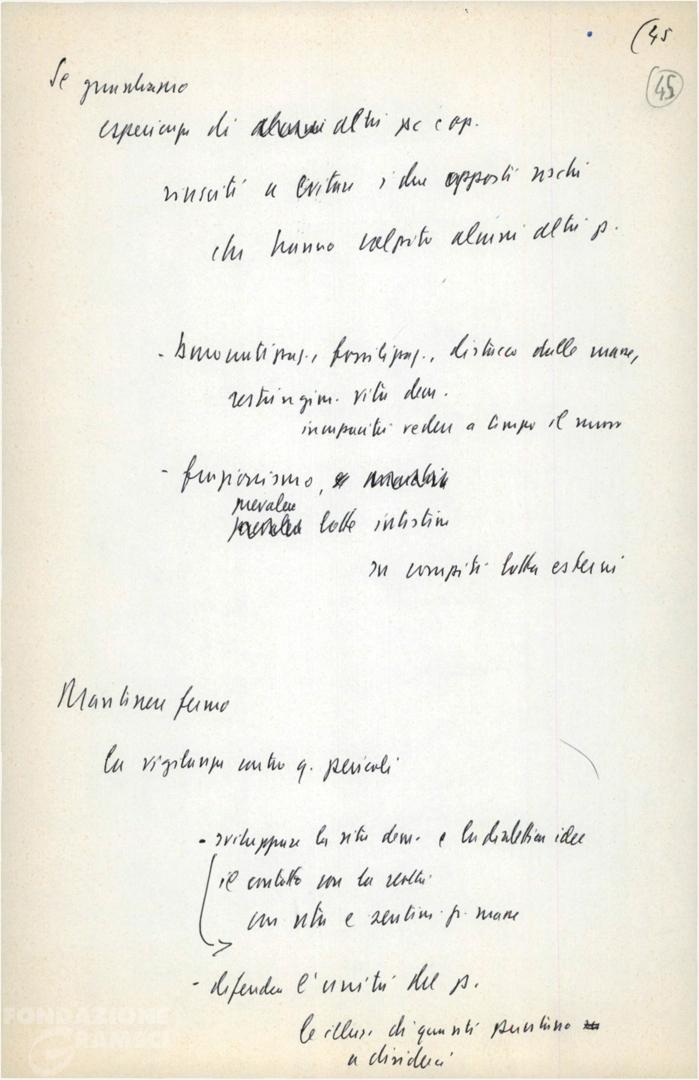 (45
45
Se guardiamo
esperienza di altri pc cap.
riusciti a evitare i due opposti rischi
che hanno colpito alcuni altri p.
- burocratizzaz., fossilizzaz., distacco dalle masse,
restringim. vita dem.
incapacità vedere a tempo il nuovo
- frazionismo,
prevalere
lotte intestine
su compiti lotta esterni
Mantenere fermo
la vigilanza contro q. pericoli
- sviluppare la vita dem. e la dialettica idee
il contatto con la realtà
con vita e sentim. gr. masse
- difendere l'unità del p.
le illus. di quanti puntino
a dividerci
FONDAZIONE
GRAMSCI